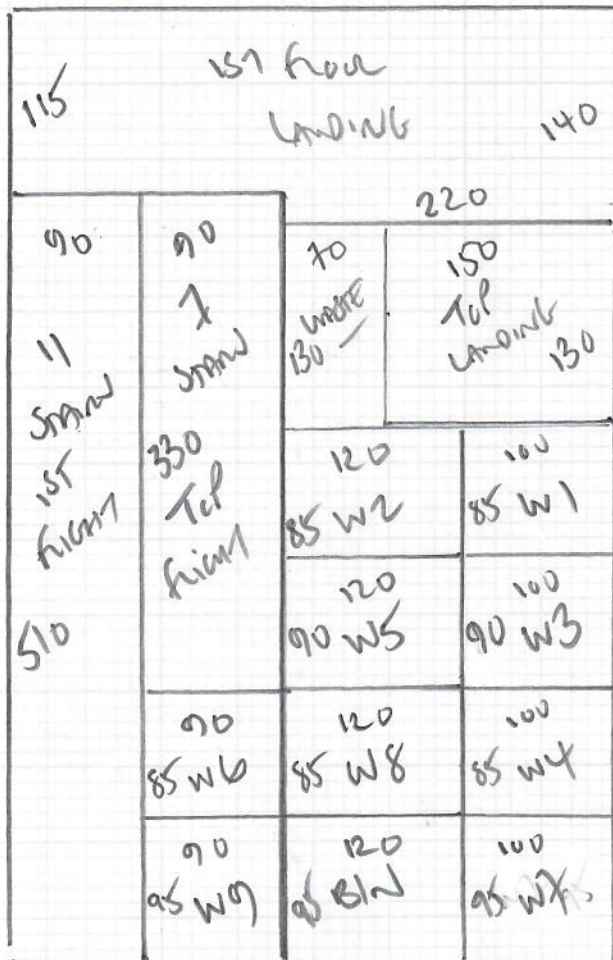 1ST FLOOR
LANDING
115
140
220
90
11
STAIRS
1ST
FLIGHT
510
90
7
STAIRS
330
TOP
FLIGHT
70
WASTE
130
150
TOP
LANDING
130
120
85 W2
100
85 W1
120
90 W5
100
90 W3
90
85 W6
120
85 W8
100
85 W4
90
95 W9
120
95 BIN
100
95 W7